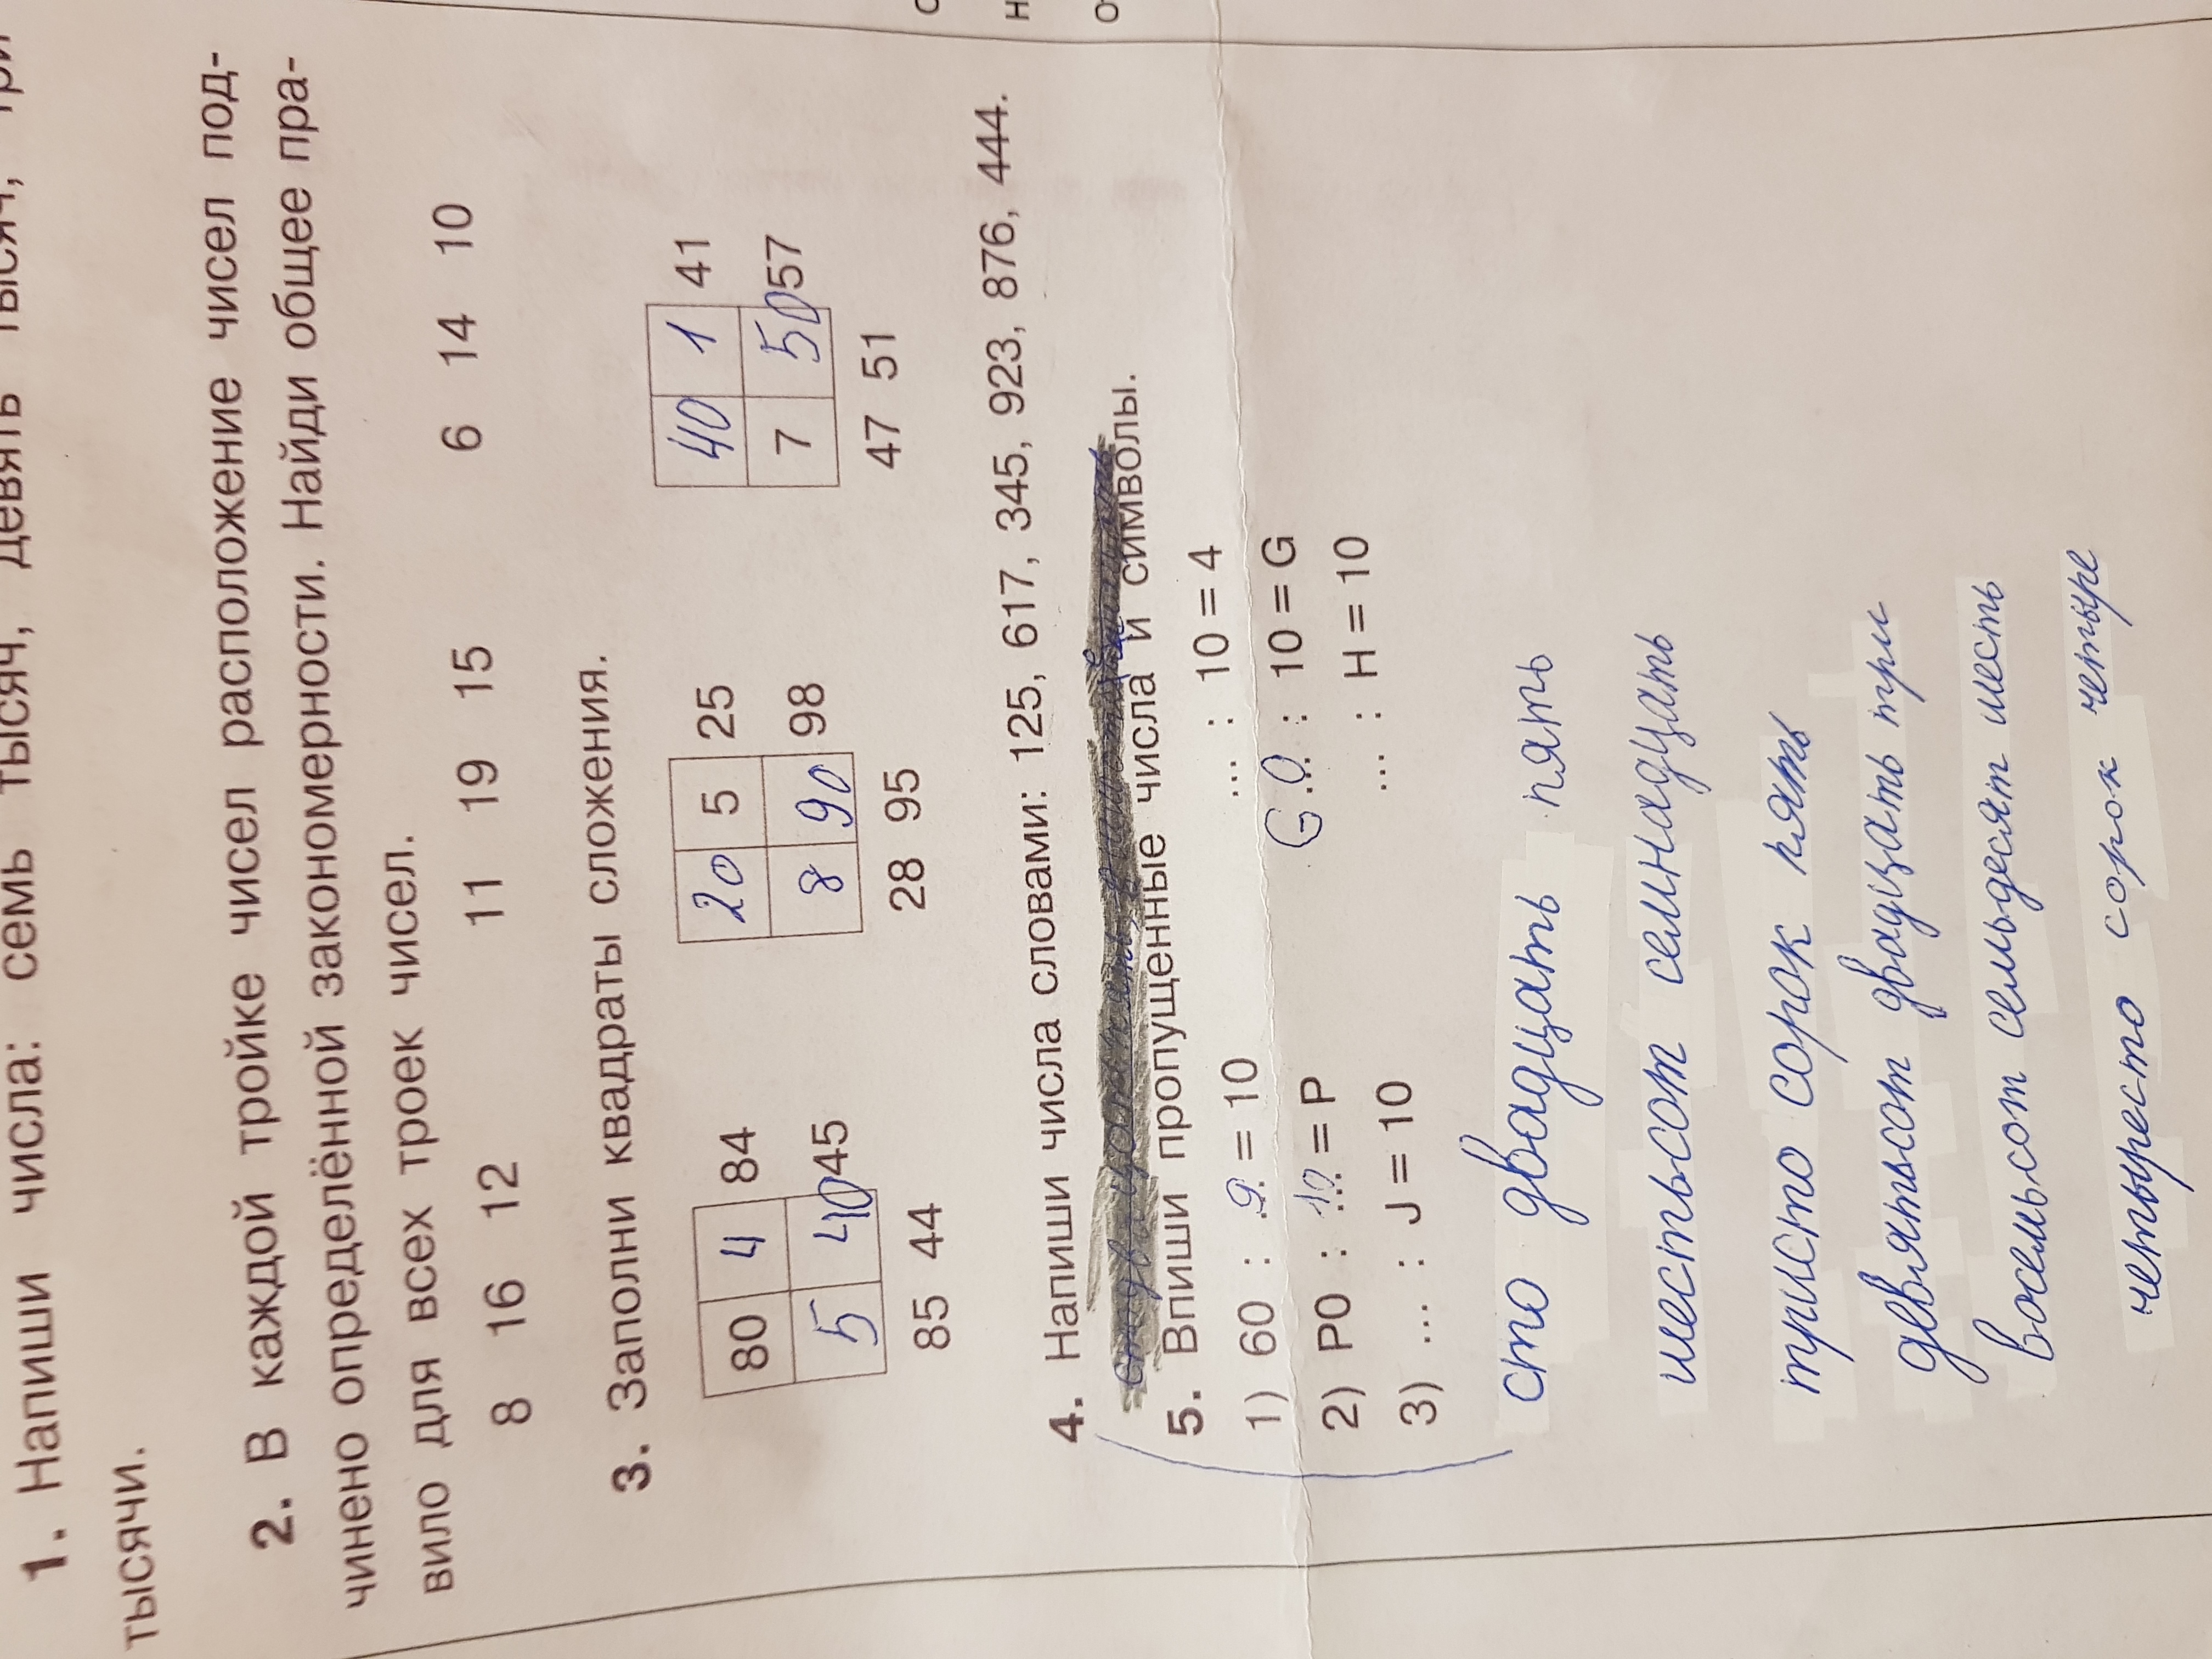 1. Напиши числа: семь тысяч, девять тысяч, три
тысячи.
2. В каждой тройке чисел расположение чисел под-
чинено определённой закономерности. Найди общее пра-
вило для всех троек чисел.
8 16 12 11 19 15 6 14 10
3. Заполни квадраты сложения.
80 4 84 20 5 25 40 1 41
5 40 45 8 90 98 7 50 57
85 44 28 95 47 51
4. Напиши числа словами: 125, 617, 345, 923, 876, 444.
5. Впиши пропущенные числа и символы.
1) 60 : ... = 10 ... : 10 = 4
2) P0 : 10 = P G0 : 10 = G
3) ... : J = 10 ... : H = 10
сто двадцать пять
шестьсот семнадцать
тристо сорок пять
девятьсот двадцать три
восемьсот семьдесят шесть
четыресто сорок четыре